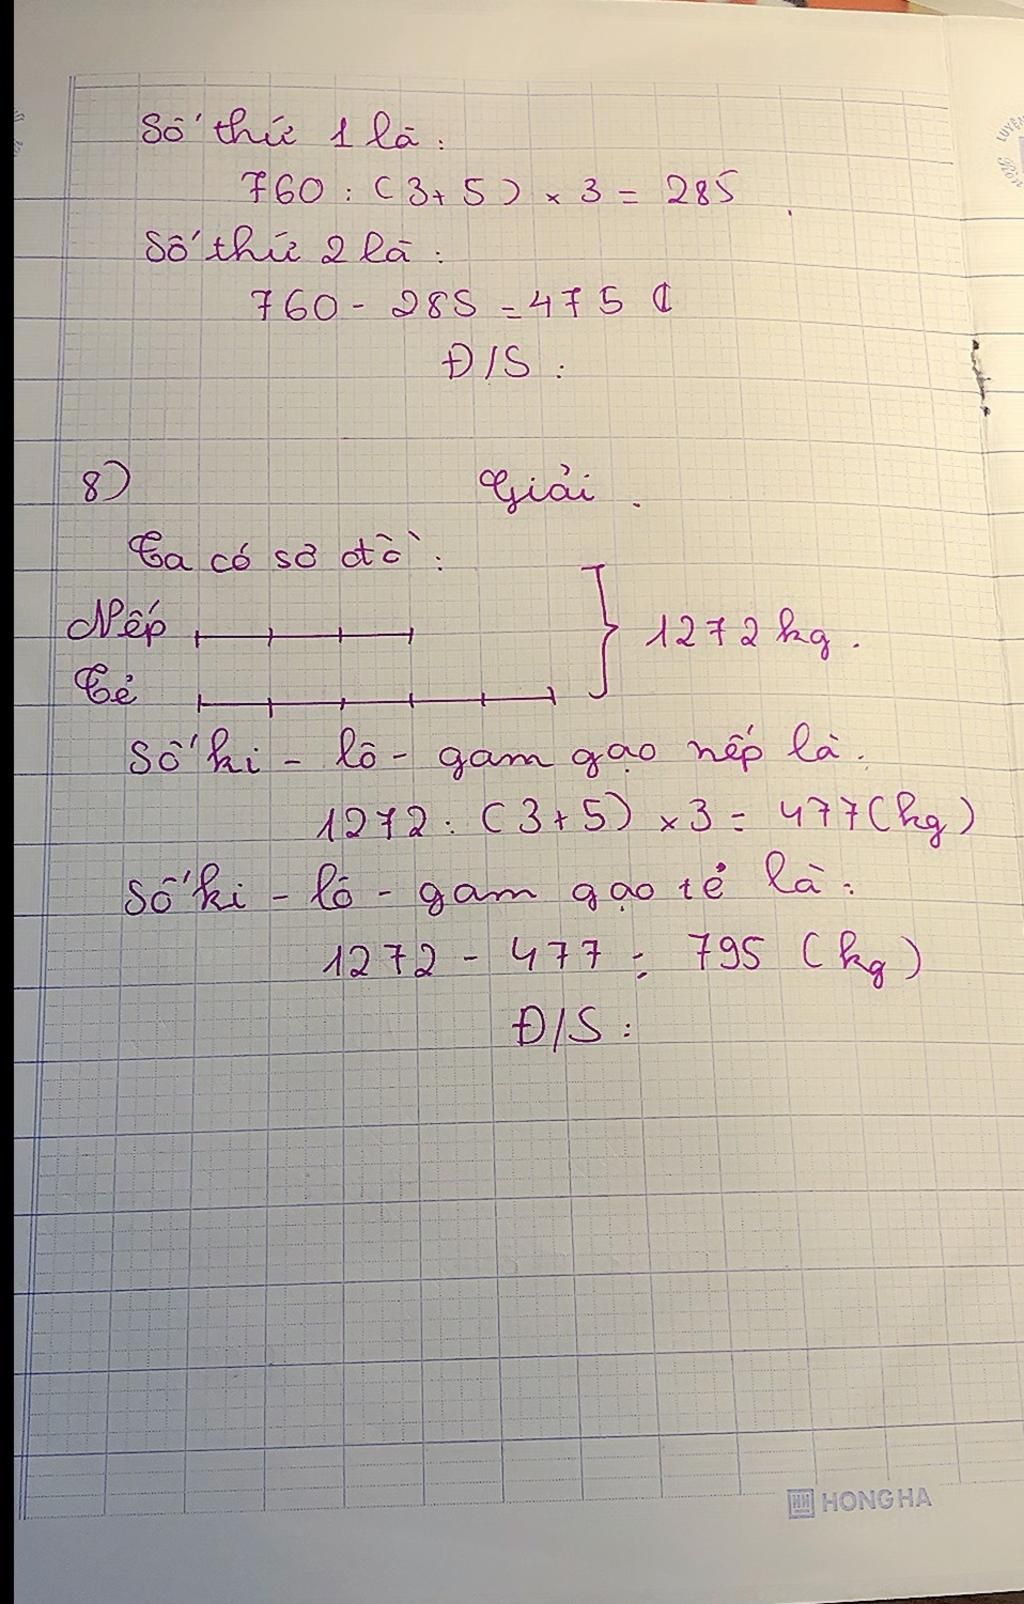 Số thứ 1 là :
760 : ( 3 + 5 ) × 3 = 285
Số thứ 2 là :
760 - 285 = 475
Đ/S :
8) Giải .
Ta có sơ đồ :
Nếp
1272 kg .
Tẻ
Số ki - lô - gam gạo nếp là :
1272 : ( 3 + 5 ) × 3 = 477 ( kg )
Số ki - lô - gam gạo tẻ là :
1272 - 477 = 795 ( kg )
Đ/S :
HONG HA